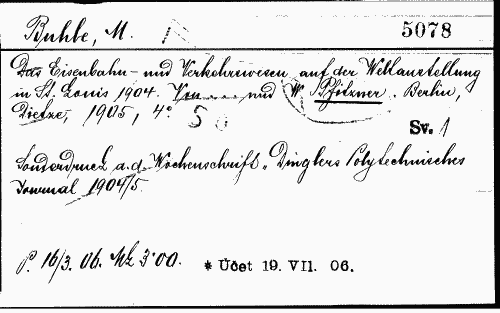 Buhle, M. 5078
Das Eisenbahn- und Verkehrswesen auf der Weltaustellung
in St. Louis 1904. Von .... und W. Pfitzner. Berlin,
Dietze, 1905, 4°.
Sv. 1
Sonderdruck a. d. Wochenschrift „Dinglers Polytechnisches
Journal 1904/5.
P. 16/3. 06. Mk 3·00. * Účet 19. VII. 06.